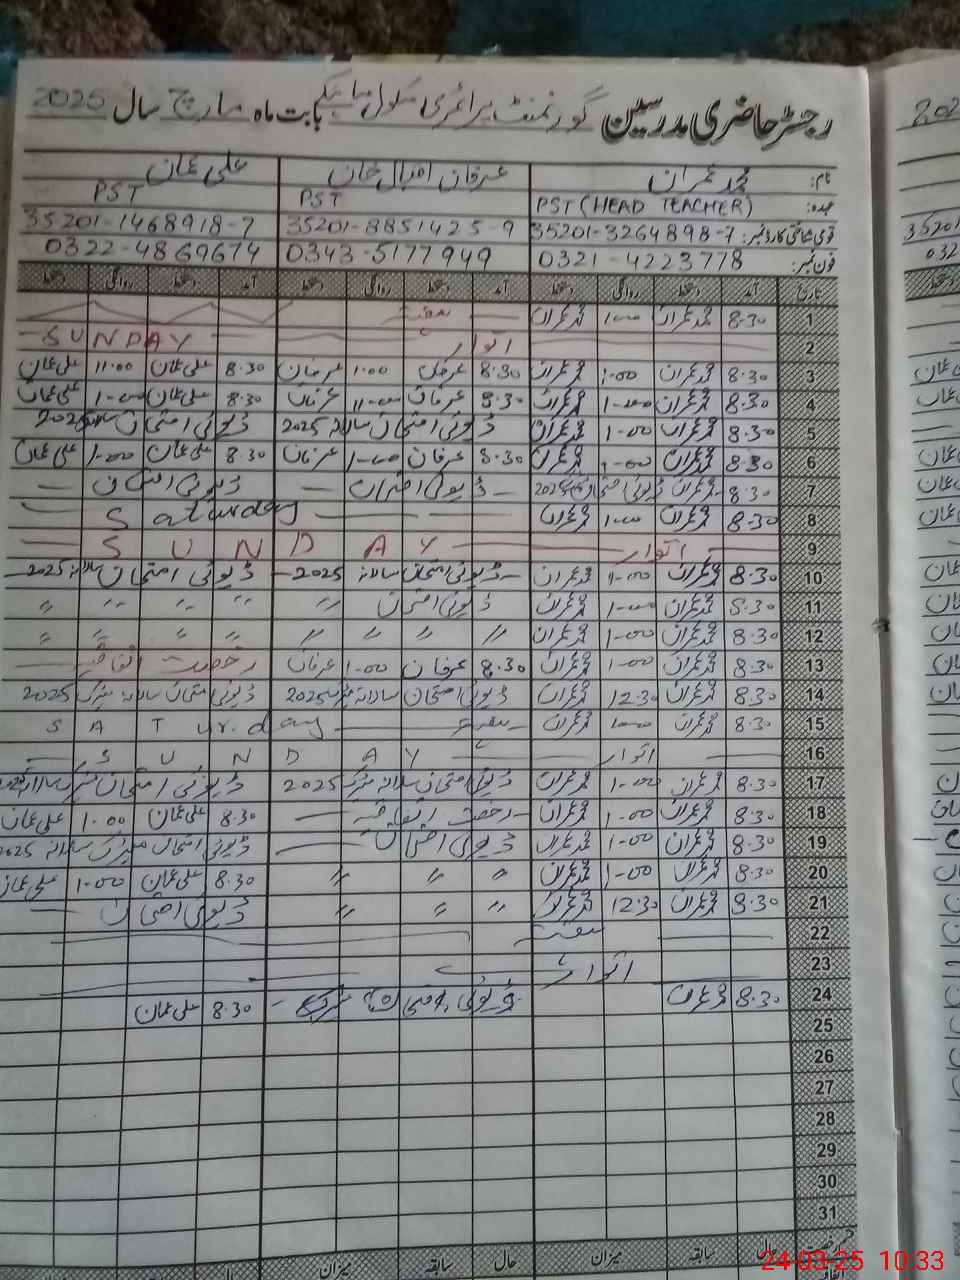 رجسٹر حاضری مدرسین گورنمنٹ پرائمری سکول بابت ماہ مارچ سال 2025
نام: محمد عمران عرفان اقبال خان علی عمان
عہدہ: PST (HEAD TEACHER) PST PST
قومی شناختی کارڈ نمبر: 35201-3264898-7 35201-8851425-9 35201-1468918-7
فون نمبر: 0321-4223778 0343-5177949 0322-4869674
تاریخ آمد دستخط روانگی دستخط آمد دستخط روانگی دستخط آمد دستخط روانگی دستخط
1 8.30 محمد عمران 1.00 محمد عمران ہفتہ
2 اتوار SUNDAY
3 8.30 محمد عمران 1.00 محمد عمران 8.30 عرفان 1.00 عرفان 8.30 علی عمان 11.00 علی عمان
4 8.30 محمد عمران 1.00 محمد عمران 8.30 عرفان 11.00 عرفان 8.30 علی عمان 1.00 علی عمان
5 8.30 محمد عمران 1.00 محمد عمران ڈیوٹی امتحان سالانہ 2025 ڈیوٹی امتحان سالانہ 2025
6 8.30 محمد عمران 1.00 محمد عمران 8.30 عرفان 1.00 عرفان 8.30 علی عمان 1.00 علی عمان
7 8.30 محمد عمران ڈیوٹی امتحان 2025 ڈیوٹی امتحان ڈیوٹی امتحان
8 8.30 محمد عمران 1.00 محمد عمران Saturday
9 اتوار SUNDAY
10 8.30 محمد عمران 1.00 محمد عمران ڈیوٹی امتحان سالانہ 2025 ڈیوٹی امتحان سالانہ 2025
11 8.30 محمد عمران 1.00 محمد عمران ڈیوٹی امتحان " " " " "
12 8.30 محمد عمران 1.00 محمد عمران " " " " " " "
13 8.30 محمد عمران 1.00 محمد عمران 8.30 عرفان 1.00 عرفان رخصت اتفاقیہ
14 8.30 محمد عمران 12.30 محمد عمران ڈیوٹی امتحان سالانہ میٹرک 2025 ڈیوٹی امتحان سالانہ میٹرک 2025
15 8.30 محمد عمران 1.00 محمد عمران ہفتہ SATurday
16 اتوار SUNDAY
17 8.30 محمد عمران 1.00 محمد عمران ڈیوٹی امتحان سالانہ میٹرک 2025 ڈیوٹی امتحان میٹرک سالانہ 2025
18 8.30 محمد عمران 1.00 محمد عمران رخصت اتفاقیہ 8.30 علی عمان 1.00 علی عمان
19 8.30 محمد عمران 1.00 محمد عمران ڈیوٹی امتحان ڈیوٹی امتحان میٹرک سالانہ 2025
20 8.30 محمد عمران 1.00 محمد عمران " " " 8.30 علی عمان 1.00 علی عمان
21 8.30 محمد عمران 12.30 محمد عمران " " " ڈیوٹی امتحان
22 ہفتہ
23 اتوار
24 8.30 محمد عمران ڈیوٹی امتحان میٹرک 8.30 علی عمان
25
26
27
28
29
30
31
سابقہ میزان حال سابقہ میزان
24-03-25 10:33